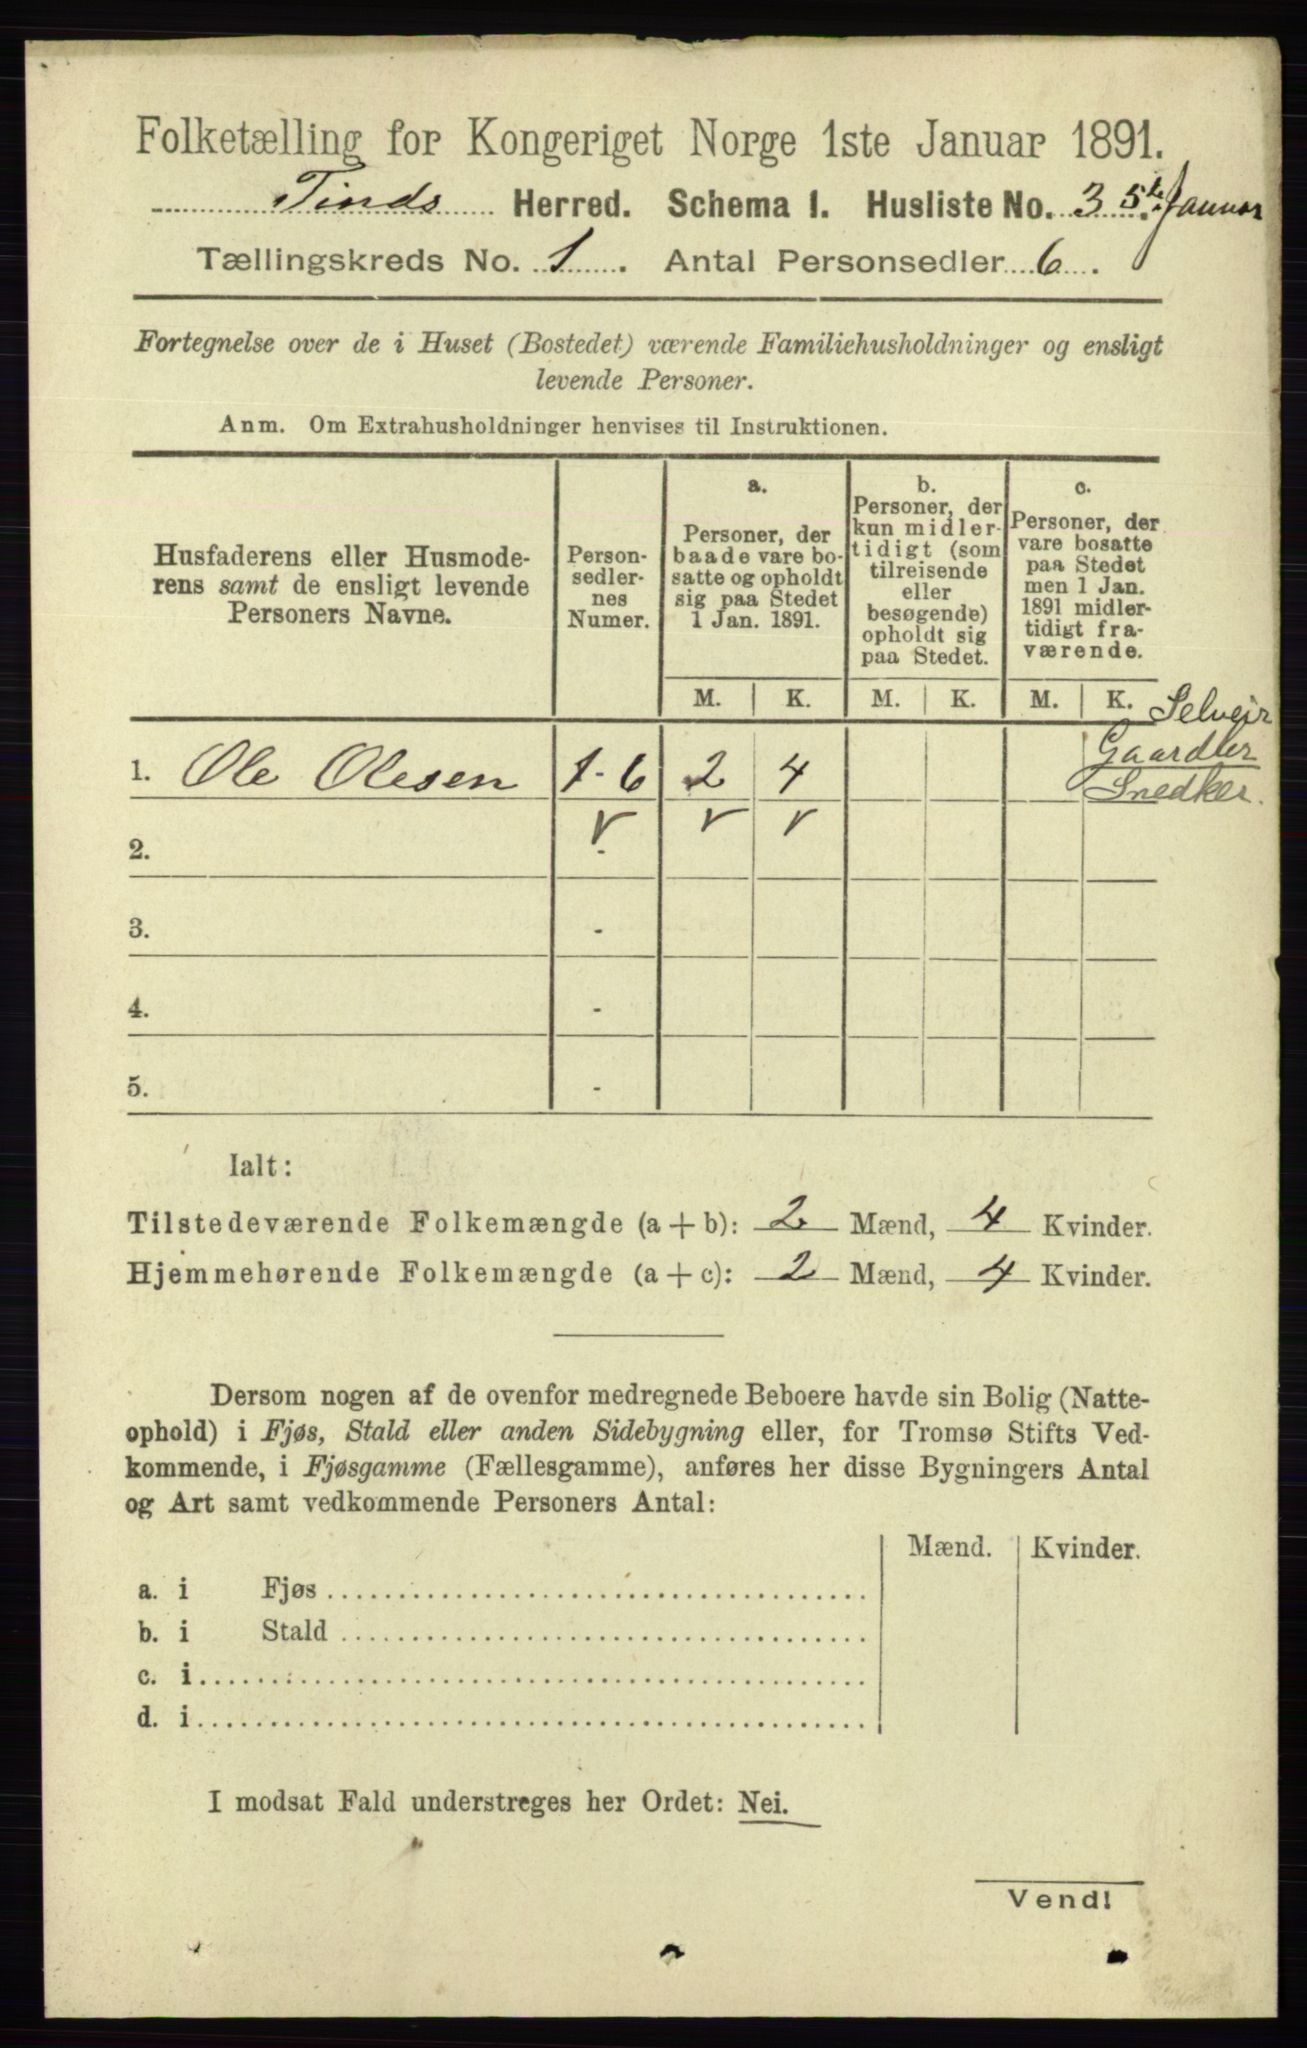 Folketælling for Kongeriget Norge 1ste Januar 1891.
Tinds Herred. Schema 1. Husliste No. 3 5te Januar
Tællingskreds No. 1. Antal Personsedler 6.
Fortegnelse over de i Huset (Bostedet) værende Familiehusholdninger og ensligt
levende Personer.
Anm. Om Extrahusholdninger henvises til Instruktionen.
Husfaderens eller Husmode-
rens samt de ensligt levende
Personers Navne.
Person-
sedler-
nes
Numer.
a.
Personer, der
baade vare bo-
satte og opholdt
sig paa Stedet
1 Jan. 1891.
b.
Personer, der
kun midler-
tidigt (som
tilreisende
eller
besøgende)
opholdt sig
paa Stedet.
c.
Personer, der
vare bosatte
paa Stedet
men 1 Jan.
1891 midler-
tidigt fra-
værende.
M. K. M. K. M. K.
Selveir
Gaardbr
Snedker.
1. Ole Olesen 1-6 2 4
2. -
3. -
4. -
5. -
Ialt:
Tilstedeværende Folkemængde (a + b): 2 Mænd, 4 Kvinder.
Hjemmehørende Folkemængde (a + c): 2 Mænd, 4 Kvinder.
Dersom nogen af de ovenfor medregnede Beboere havde sin Bolig (Natte-
ophold) i Fjøs, Stald eller anden Sidebygning eller, for Tromsø Stifts Ved-
kommende, i Fjøsgamme (Fællesgamme), anføres her disse Bygningers Antal
og Art samt vedkommende Personers Antal:
Mænd. Kvinder.
a. i Fjøs
b. i Stald
c. i
d. i
I modsat Fald understreges her Ordet: Nei.
Vend!